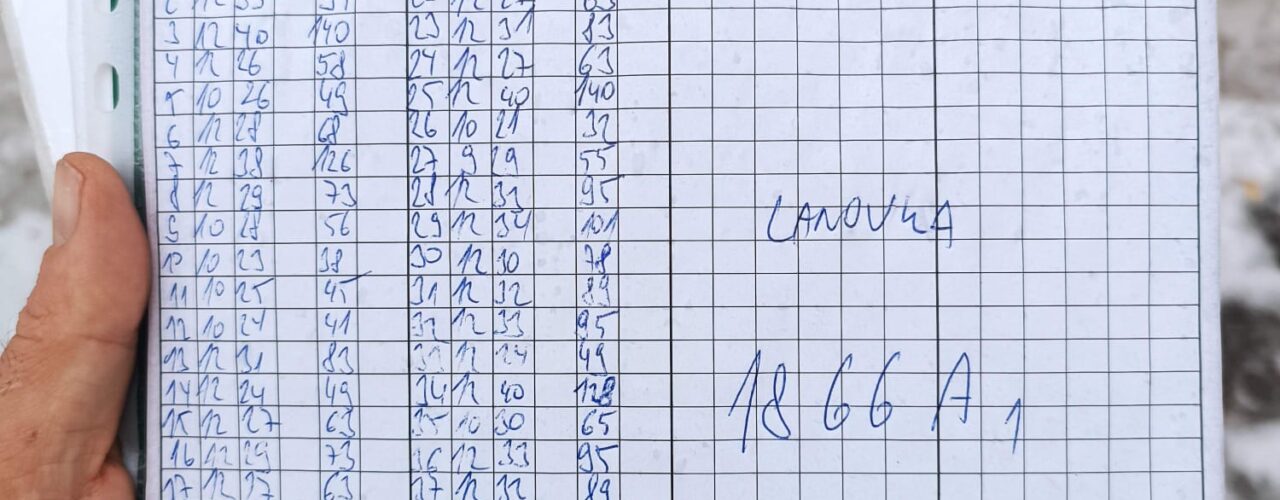 3 12 40 140 23 12 31 83
4 12 26 58 24 12 27 63
5 10 26 49 25 12 40 140
6 12 28 68 26 10 21 32
7 12 38 126 27 9 29 55
8 12 29 73 28 12 33 95
9 10 28 56 29 12 34 101
10 10 23 38 30 12 30 78
11 10 25 45 31 12 32 89
12 10 24 41 32 12 33 95
13 12 31 83 33 12 24 49
14 12 24 49 34 12 40
15 12 27 63 35 10 30 65
16 12 29 73 36 12 33 95
17 12 27 63 37 12 32 89
LANOVKA
1866 A1